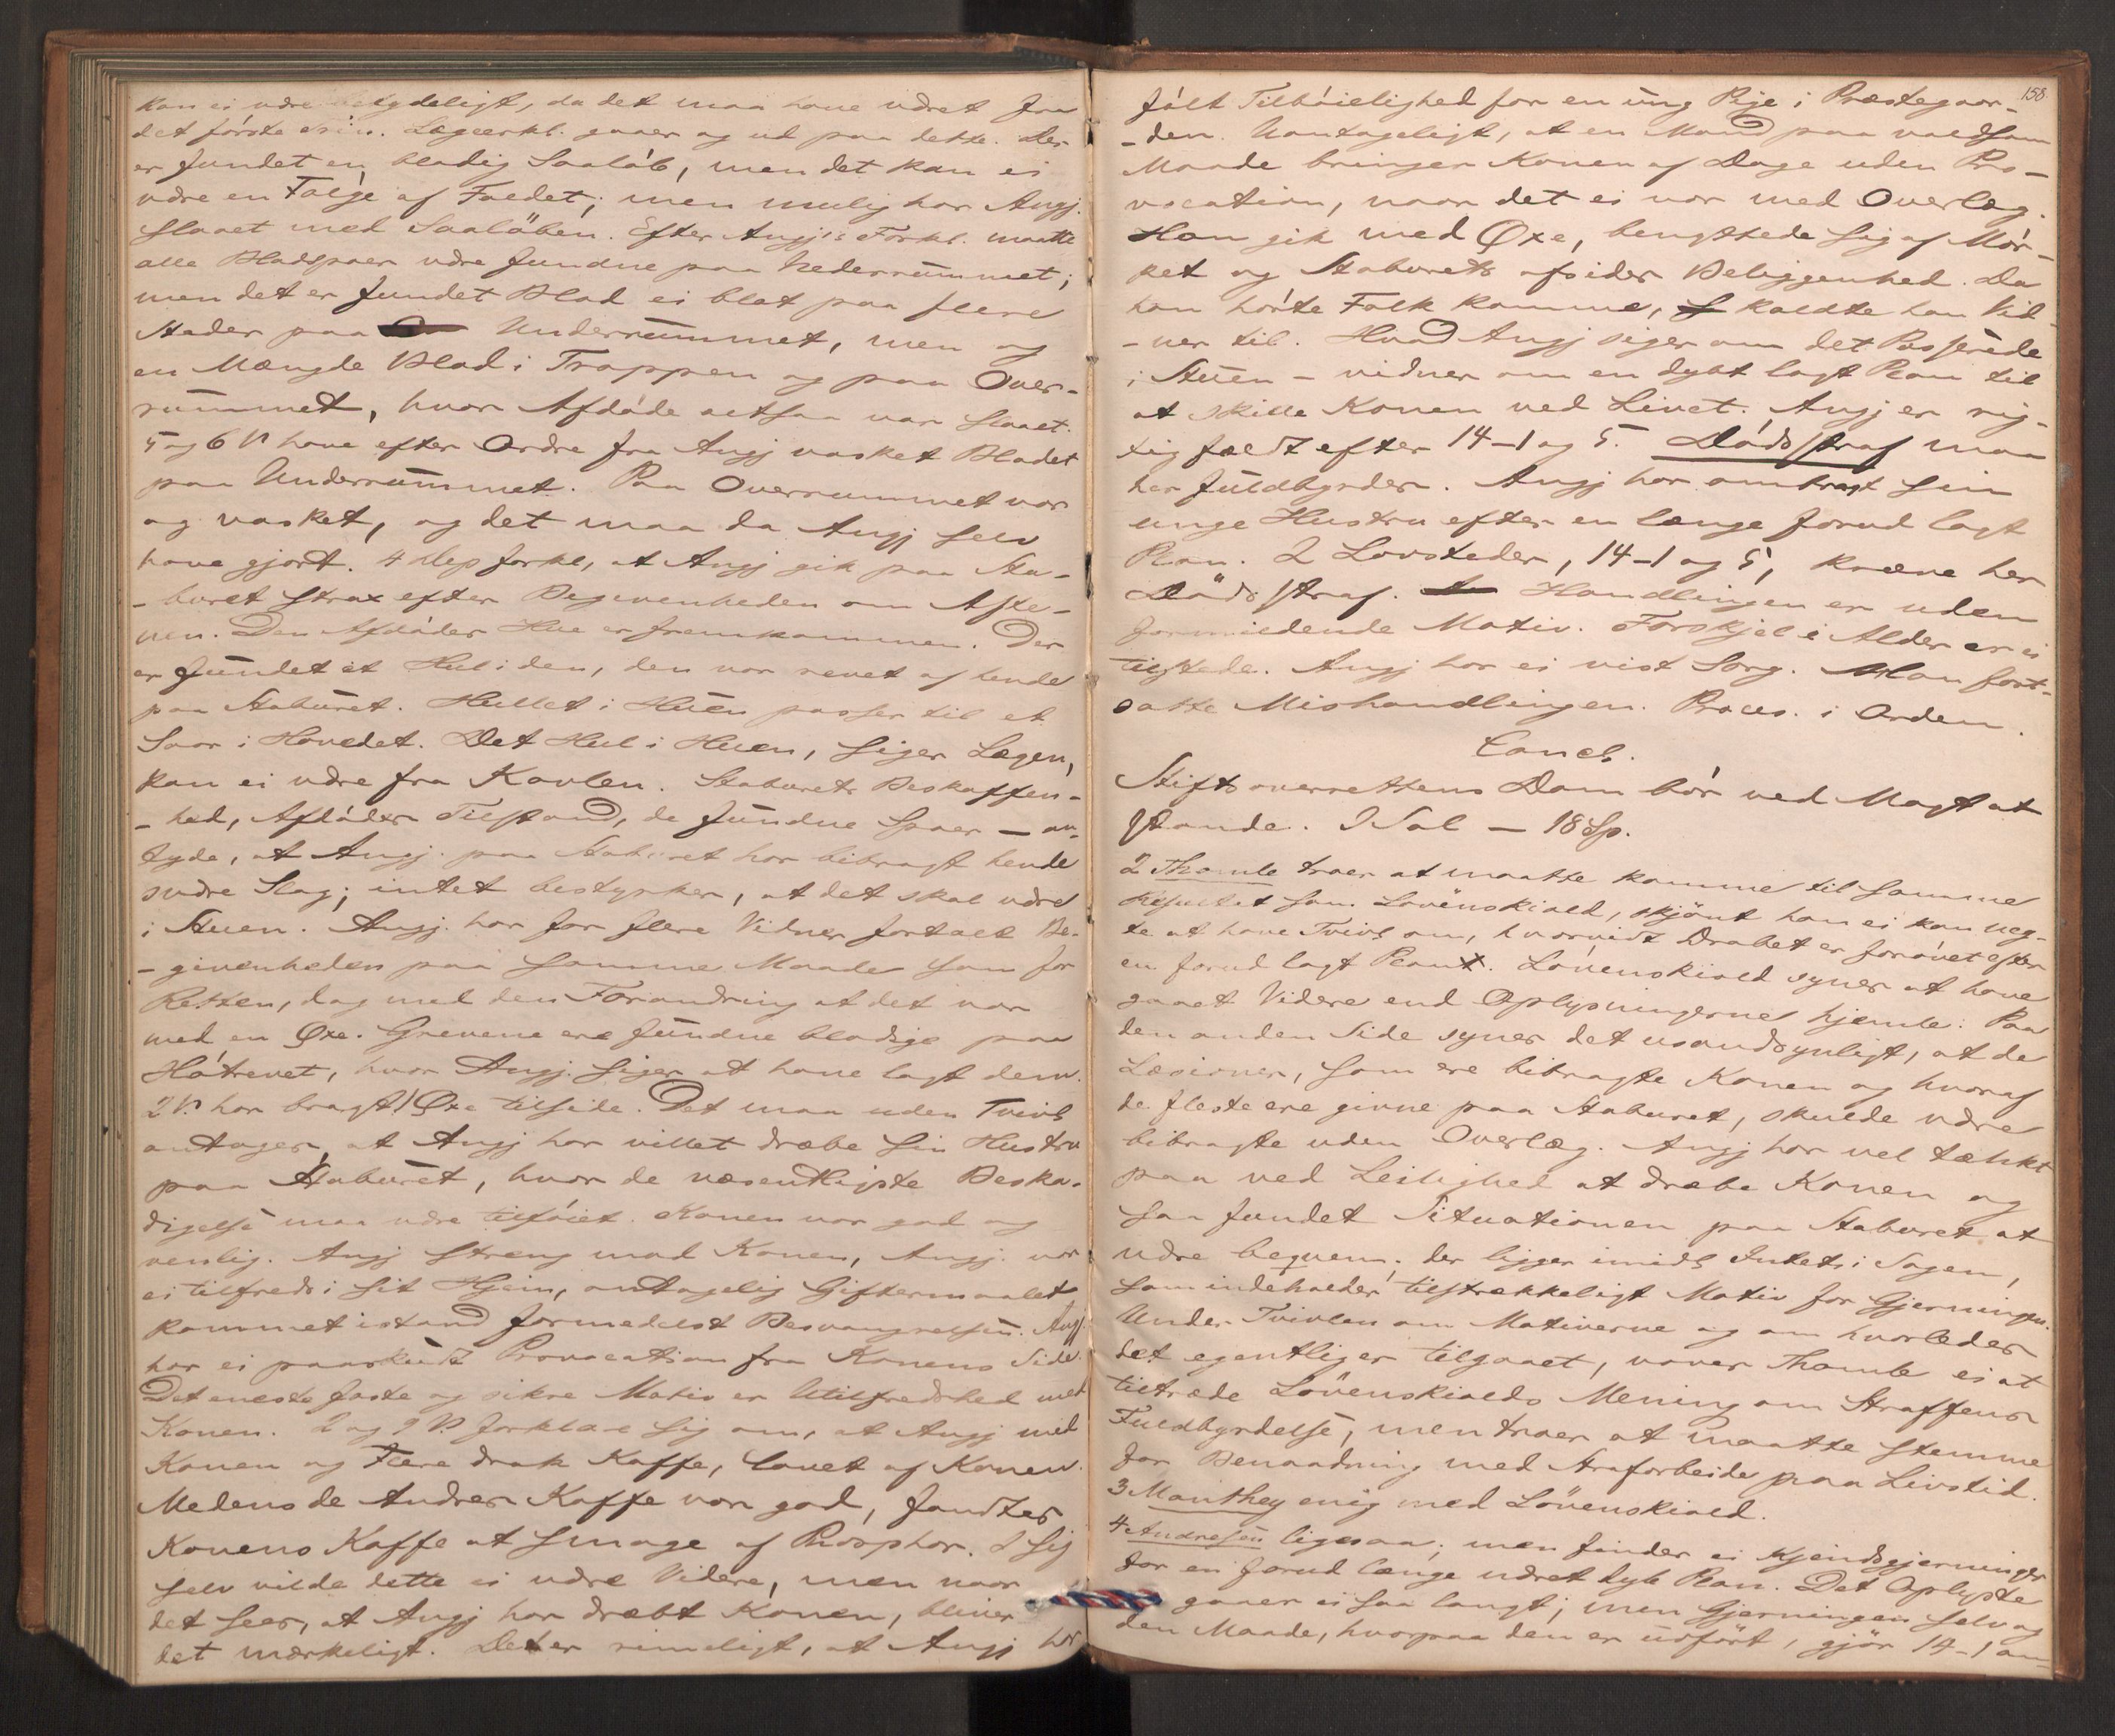 kan ei være betydeligt, da det maa have været fra
det første Trin. Lægeerkl. gaaer og ud paa dette. Der
er fundet en blodig Saaløb, men det kan ei
være en Følge af Faldet; men mulig har Angj.
slaaet med Saaløben. Efter Angj.s Forkl. maatte
alle Blodspoer være fundne paa Nederrummet;
men det er fundet Blod ei blot paa flere
Steder paa Underrummet, men og
en Mængde Blod i Trappen og paa Over-
rummet, hvor Afdøde altsaa var slaaet.
5 og 6 V have efter Ordre fra Angj vasket Blodet
paa Underrummet. Paa Overrummet var
og vasket, og det maa da Angj selv
have gjort. 4 Dep forkl, at Angj gik paa Sta-
-buret strax efter Begivenheden om Afte-
nen. Den Afdødes Hue er fremkommen. Der
er fundet et Hul i den, den var revet af hende
paa Staburet. Hullet i Huen passer til et
Saar i Hovedet. Det Hul i Huen, siger Lægen,
kan ei være fra Kavlen. Staburets Beskaffen-
-hed, Afdødes Tilstand, de fundne Spoer – an-
tyde, at Angj. paa Staburet har bibragt hende
svære Slag; intet bestyrker, at det skal være
i Stuen. Angj. har for flere Vidner fortalt Be-
-givenheden paa samme Maade som for
Retten, dog med den Forandring at det var
med en Øxe. Grevene ere fundne blodige paa
Høtrevet, hvor Angj. siger at have lagt dem.
2 V. har bragt Øxe tilside. Det maa uden Tvivl
antages, at Angj har villet dræbe sin Hustru
paa Staburet, hvor de væsentligste Beska-
digelse maa være tilføiet. Konen var god og
venlig. Angj streng mod Konen, Angj. var
ei tilfreds i sit Hjem, antagelig Giftermaalet
kommet istand formedelst Besvangrelsen. Angj
har ei paaskudt Provocation fra Konens Side.
Det eneste faste og sikre Motiv er Utilfredshed med
Konen. 2 og 9 V. forklare sig om, at Angj med
Konen og Flere drak Kaffe, lavet af Konen.
Medens de Andres Kaffe var god, fandtes
Konens Kaffe at smage af Phosphor. I sig
selv vilde dette ei være Videre, men naar
det sees, at Angj har dræbt Konen, bliver
det mærkeligt. Det er rimeligt, at Angj har
158
følt Tilbøielighed for en ung Pige i Præstegaar-
-den. Uantageligt, at en Mand paa voldsom
Maade bringer Konen af Dage uden Pro-
vocation, naar det ei var med Overlæg.
Han gik med Øxe, benyttede sig af Mør-
ket og Staburets afsides Beliggenhed. Da
han hørte Folk komme, kaldte han Vid-
-ner til. Hvad Angj siger om det Passerede
i Stuen – vidner om en dybt lagt Plan til
at skille Konen ved Livet. Angj er rig-
tig fældt efter 14-1 og 5. Dødsstraf maa
her fuldbyrdes. Angj har ombragt sin
unge Hustru efter en længe forud lagt
Plan. 2 Lovsteder, 14-1 og 5, kræve her
Dødsstraf. Handlingen er uden
formildende Motiv. Forskjel i Alder er ei
tilstede. Angj har ei vist Sorg. Han fort-
satte Mishandlingen. Proces. i Orden.
Concl.
Stiftsoverrettens Dom bør ved Magt at
stande. I Sal – 18 Sp.
2 Thomle troer at maatte komme til samme
Resultat som Løvenskiold, skjønt han ei kan neg-
te at have Tvivl om, hvorvidt Drabet er forøvet efter
en forud lagt Plan. Løvenskiold synes at have
gaaet Videre end Oplysningerne hjemle. Paa
den anden Side synes det usandsynligt, at de
Læsioner, som ere bibragte Konen og hvoraf
de fleste ere givne paa Staburet, skulde være
bibragte uden Overlæg. Angj har vel tænkt
paa ved Leilighed at dræbe Konen og
saa fundet Situationen paa Staburet at
være beqvem; der ligger imidl Intet i Sagen,
som indeholder tilstrækkeligt Motiv for Gjerningen.
Under Tvivlen om Motiverne og om hvorledes
det egentlig er tilgaaet, vover Thomle ei at
tiltræde Løvenskiolds Mening om Straffens
Fuldbyrdelse, men troer at maatte stemme
for Benaadning med Strafarbeide paa Livstid.
3 Manthey enig med Løvenskiold.
4 Andresen ligesaa; men finder ei Kjendsgjerninger
for en forud længe næret dyb Plan. Det Oplyste
gaaer ei saa langt; men Gjerningen selv og
den Maade, hvorpaa den er udført, gjør 14-1 an-